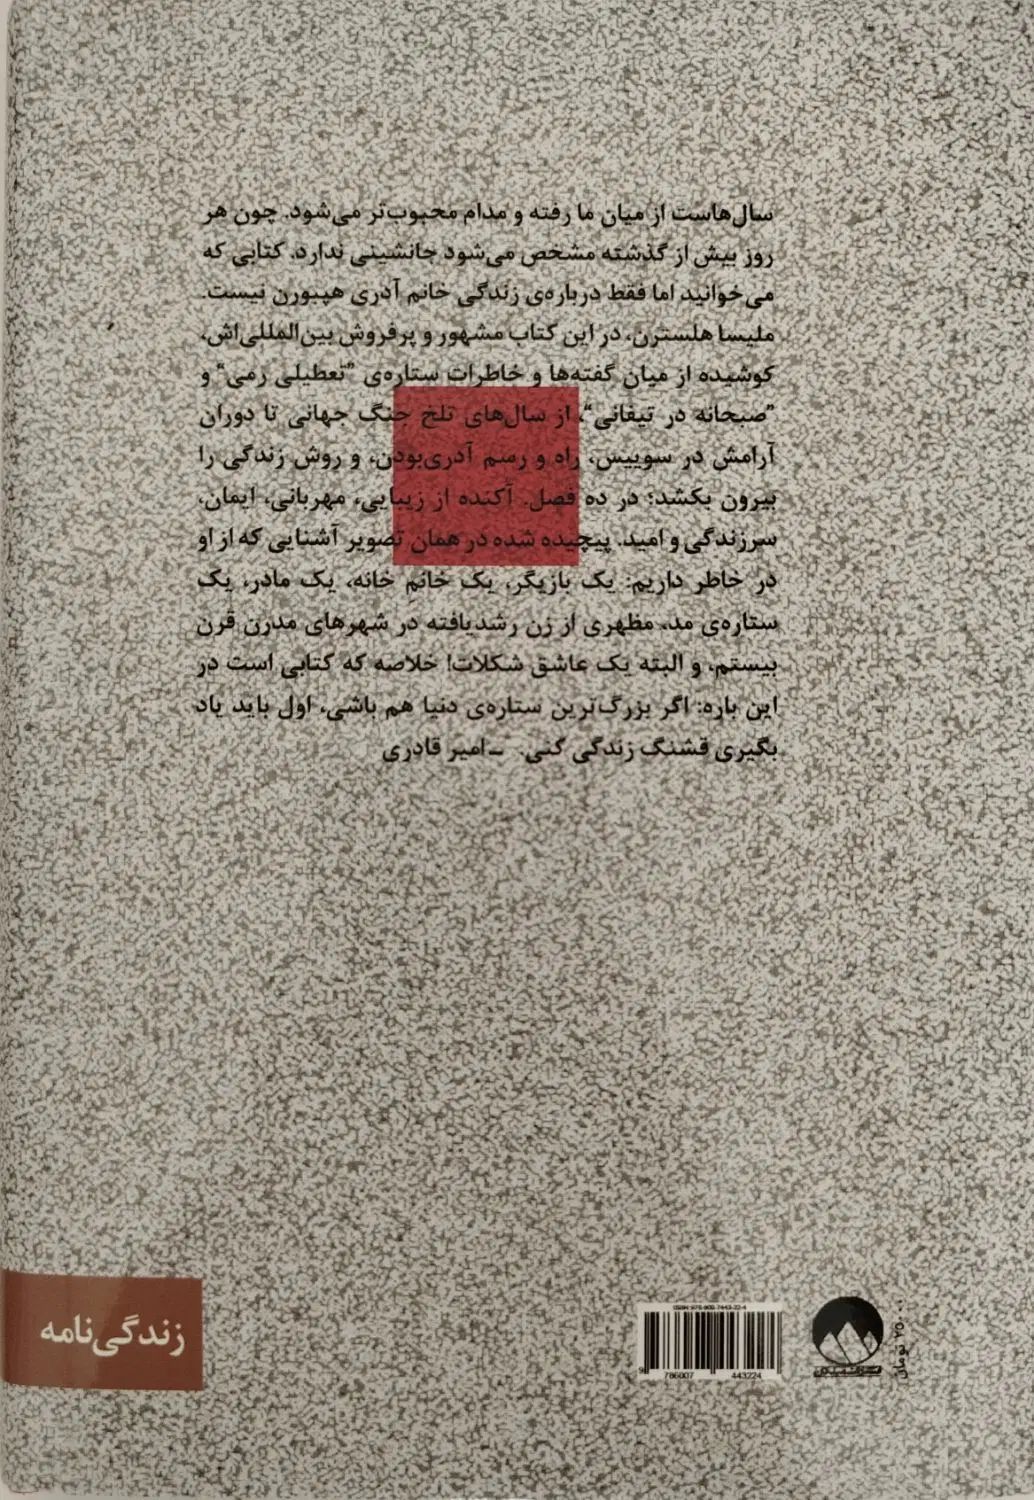 سال‌هاست از میان ما رفته و مدام محبوب‌تر می‌شود. چون هر
روز بیش از گذشته مشخص می‌شود جانشینی ندارد. کتابی که
می‌خوانید اما فقط درباره‌ی زندگی خانم آدری هیبورن نیست.
ملیسا هلسترن، در این کتاب مشهور و پرفروش بین‌المللی‌اش،
کوشیده از میان گفته‌ها و خاطرات ستاره‌ی "تعطیلی رمی" و
"صبحانه در تیفانی"، از سال‌های تلخ جنگ جهانی تا دوران
آرامش در سوییس، راه و رسم آدری‌بودن، و روش زندگی را
بیرون بکشد؛ در ده فصل. آکنده از زیبایی، مهربانی، ایمان،
سرزندگی و امید. پیچیده شده در همان تصویر آشنایی که از او
در خاطر داریم: یک بازیگر، یک خانمِ خانه، یک مادر، یک
ستاره‌ی مد، مظهری از زن رشدیافته در شهرهای مدرن قرن
بیستم، و البته یک عاشق شکلات! خلاصه که کتابی است در
این باره: اگر بزرگ‌ترین ستاره‌ی دنیا هم باشی، اول باید یاد
بگیری قشنگ زندگی کنی. ـ امیر قادری
زندگی‌نامه
ISBN: 978-600-7443-22-4
9 786007 443224
تومان